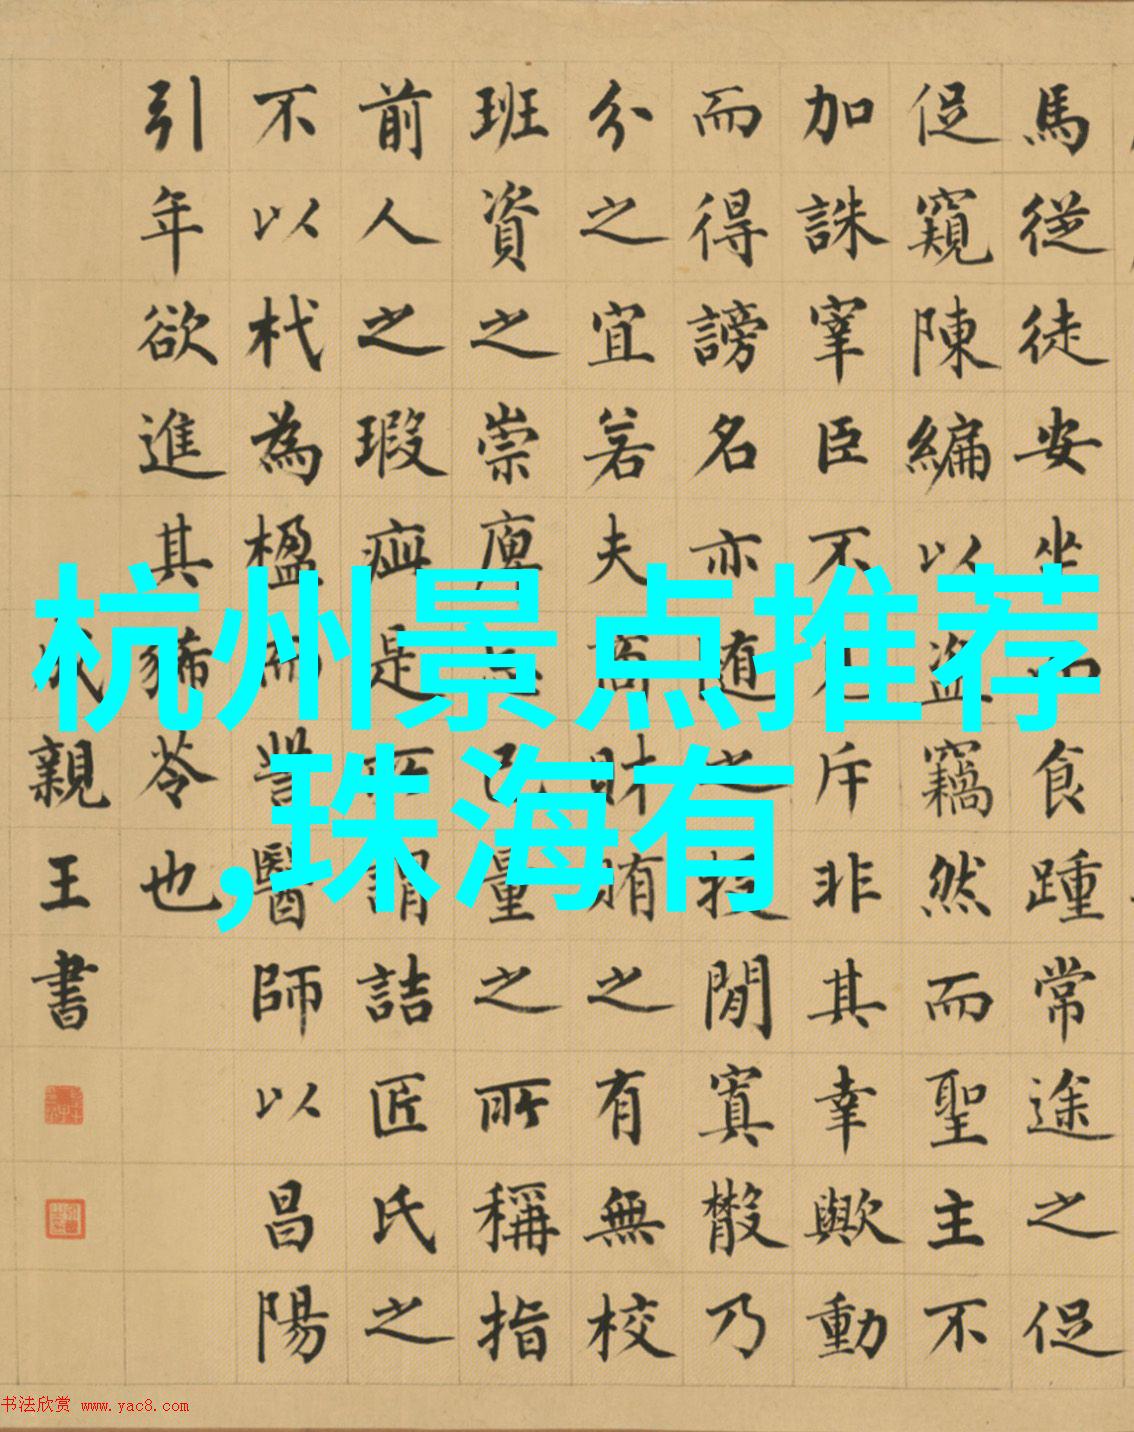 馬從徒安坐而食踵常途之促
促窺陳編以盜竊然而聖主不
加誅宰臣不見斥非其幸歟動
而得謗名亦隨之投閒寘散乃
分之宜若夫商財賄之有無校
班資之崇庳忘己量之所稱指
前人之瑕疵是所謂詰匠氏之
不以杙為楹而訾醫師以昌陽
引年欲進其豨苓也
成親王書
杭州景点推荐
,珠海有
书法欣赏 www.yac8.com